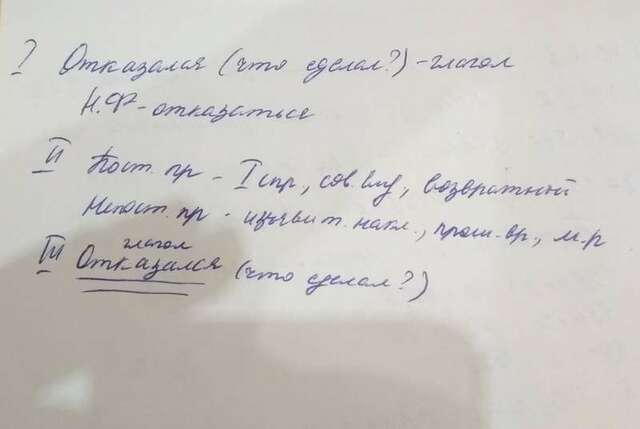 I Отказался (что сделал?) - глагол
Н.Ф - отказаться
II Пост. пр - I спр, сов. вид, возвратный
Непост. пр - изъявит. накл., прош. вр., м.р
глагол
III Отказался (что сделал?)